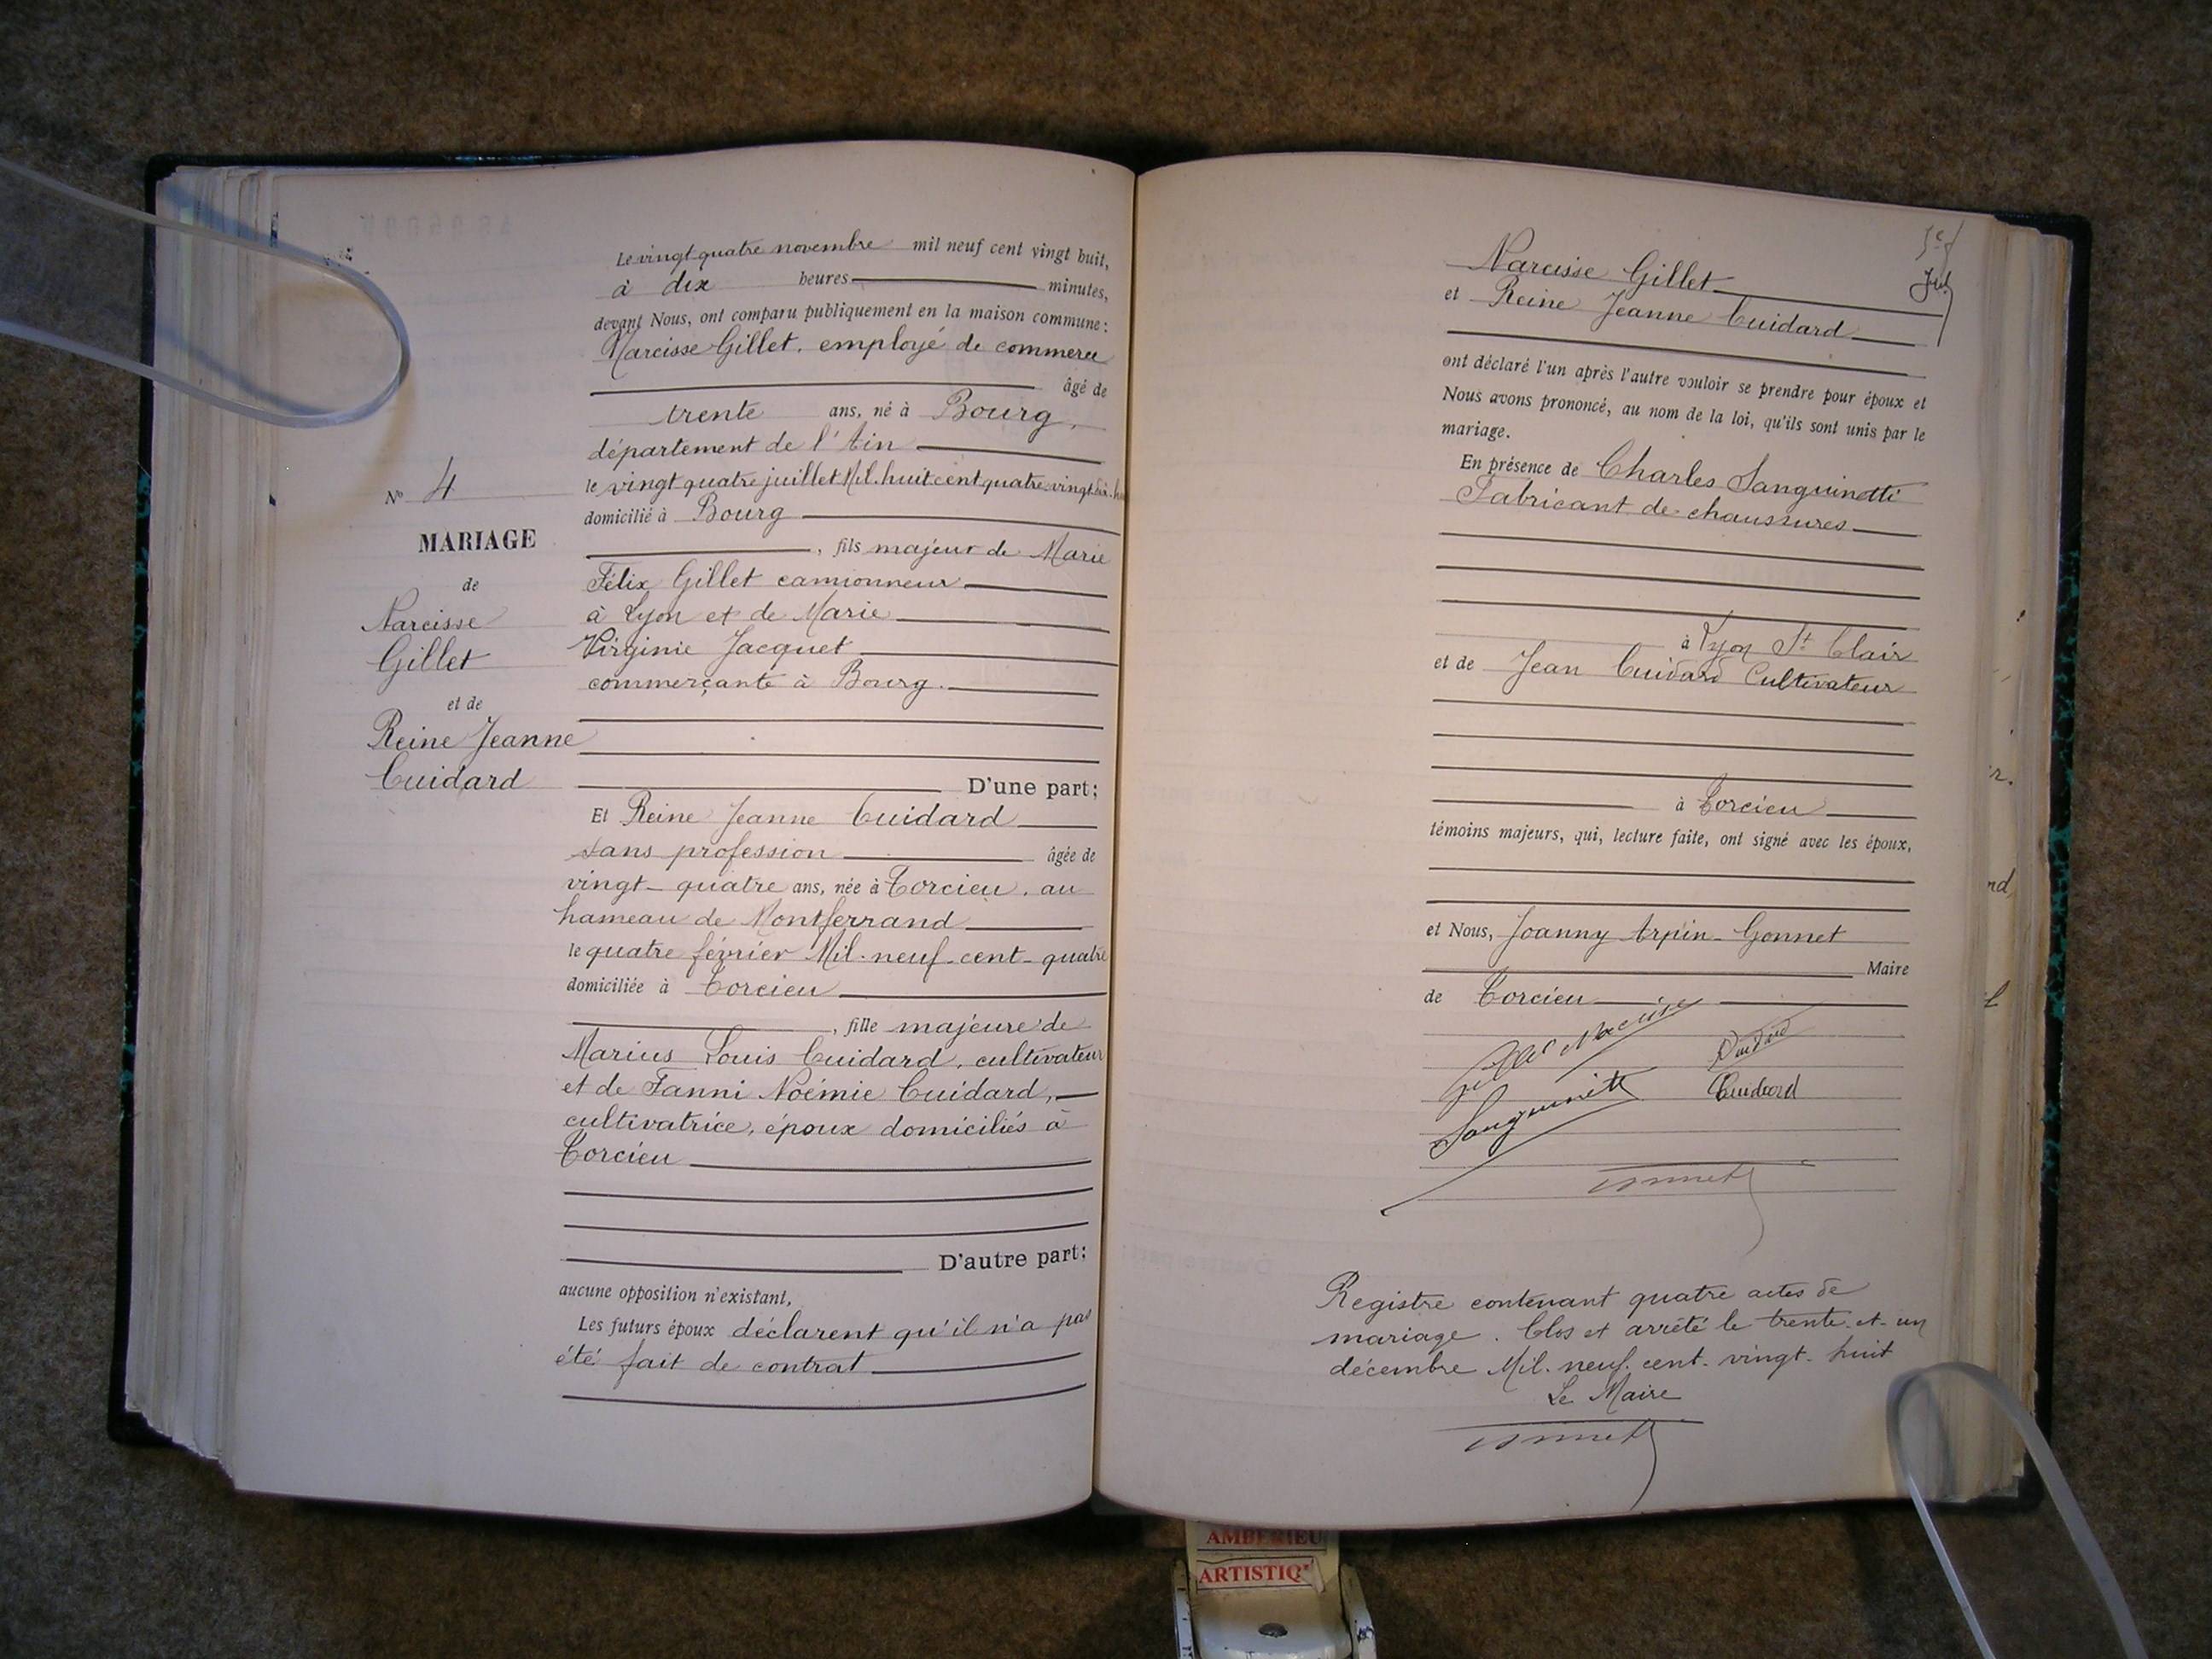 Le vingt quatre novembre mil neuf cent vingt huit,
à dix heures minutes,
devant Nous, ont comparu publiquement en la maison commune :
Narcisse Gillet. employé de commerce
âgé de
trente ans, né à Bourg,
département de l'Ain
le vingt quatre juillet Mil. huit cent quatre-vingt
domicilié à Bourg
, fils majeur de Marie
Félix Gillet camionneur
à Lyon et de Marie
Virginie Jacquet
commerçante à Bourg.
D'une part;
N° 4
MARIAGE
de
Narcisse
Gillet
et de
Reine Jeanne
Cuidard
Et Reine Jeanne Cuidard
sans profession âgée de
vingt-quatre ans, née à Torcieu. au
hameau de Montferrand
le quatre février Mil-neuf-cent-quatre
domiciliée à Torcieu
, fille majeure de
Marius Louis Cuidard, cultivateur
et de Fanni Noémie Cuidard,
cultivatrice, époux domiciliés à
Torcieu
D'autre part;
aucune opposition n'existant,
Les futurs époux déclarent qu'il n'a pas
été fait de contrat
Narcisse Gillet
et Reine Jeanne Cuidard
ont déclaré l'un après l'autre vouloir se prendre pour époux et
Nous avons prononcé, au nom de la loi, qu'ils sont unis par le
mariage.
En présence de Charles Sanguinetti
Fabricant de chaussures
à Lyon St Clair
et de Jean Cuidard Cultivateur
à Torcieu
témoins majeurs, qui, lecture faite, ont signé avec les époux,
et Nous, Joanny Arpin-Gonnet
Maire
de Torcieu
Gillet Narcisse
Cuidard
Sanguinetti
Cuidard
Gonnet
Registre contenant quatre actes de
mariage. Clos et arrêté le trente-et-un
décembre Mil-neuf-cent-vingt-huit
Le Maire
Gonnet
AMBERIEU
ARTISTIQ